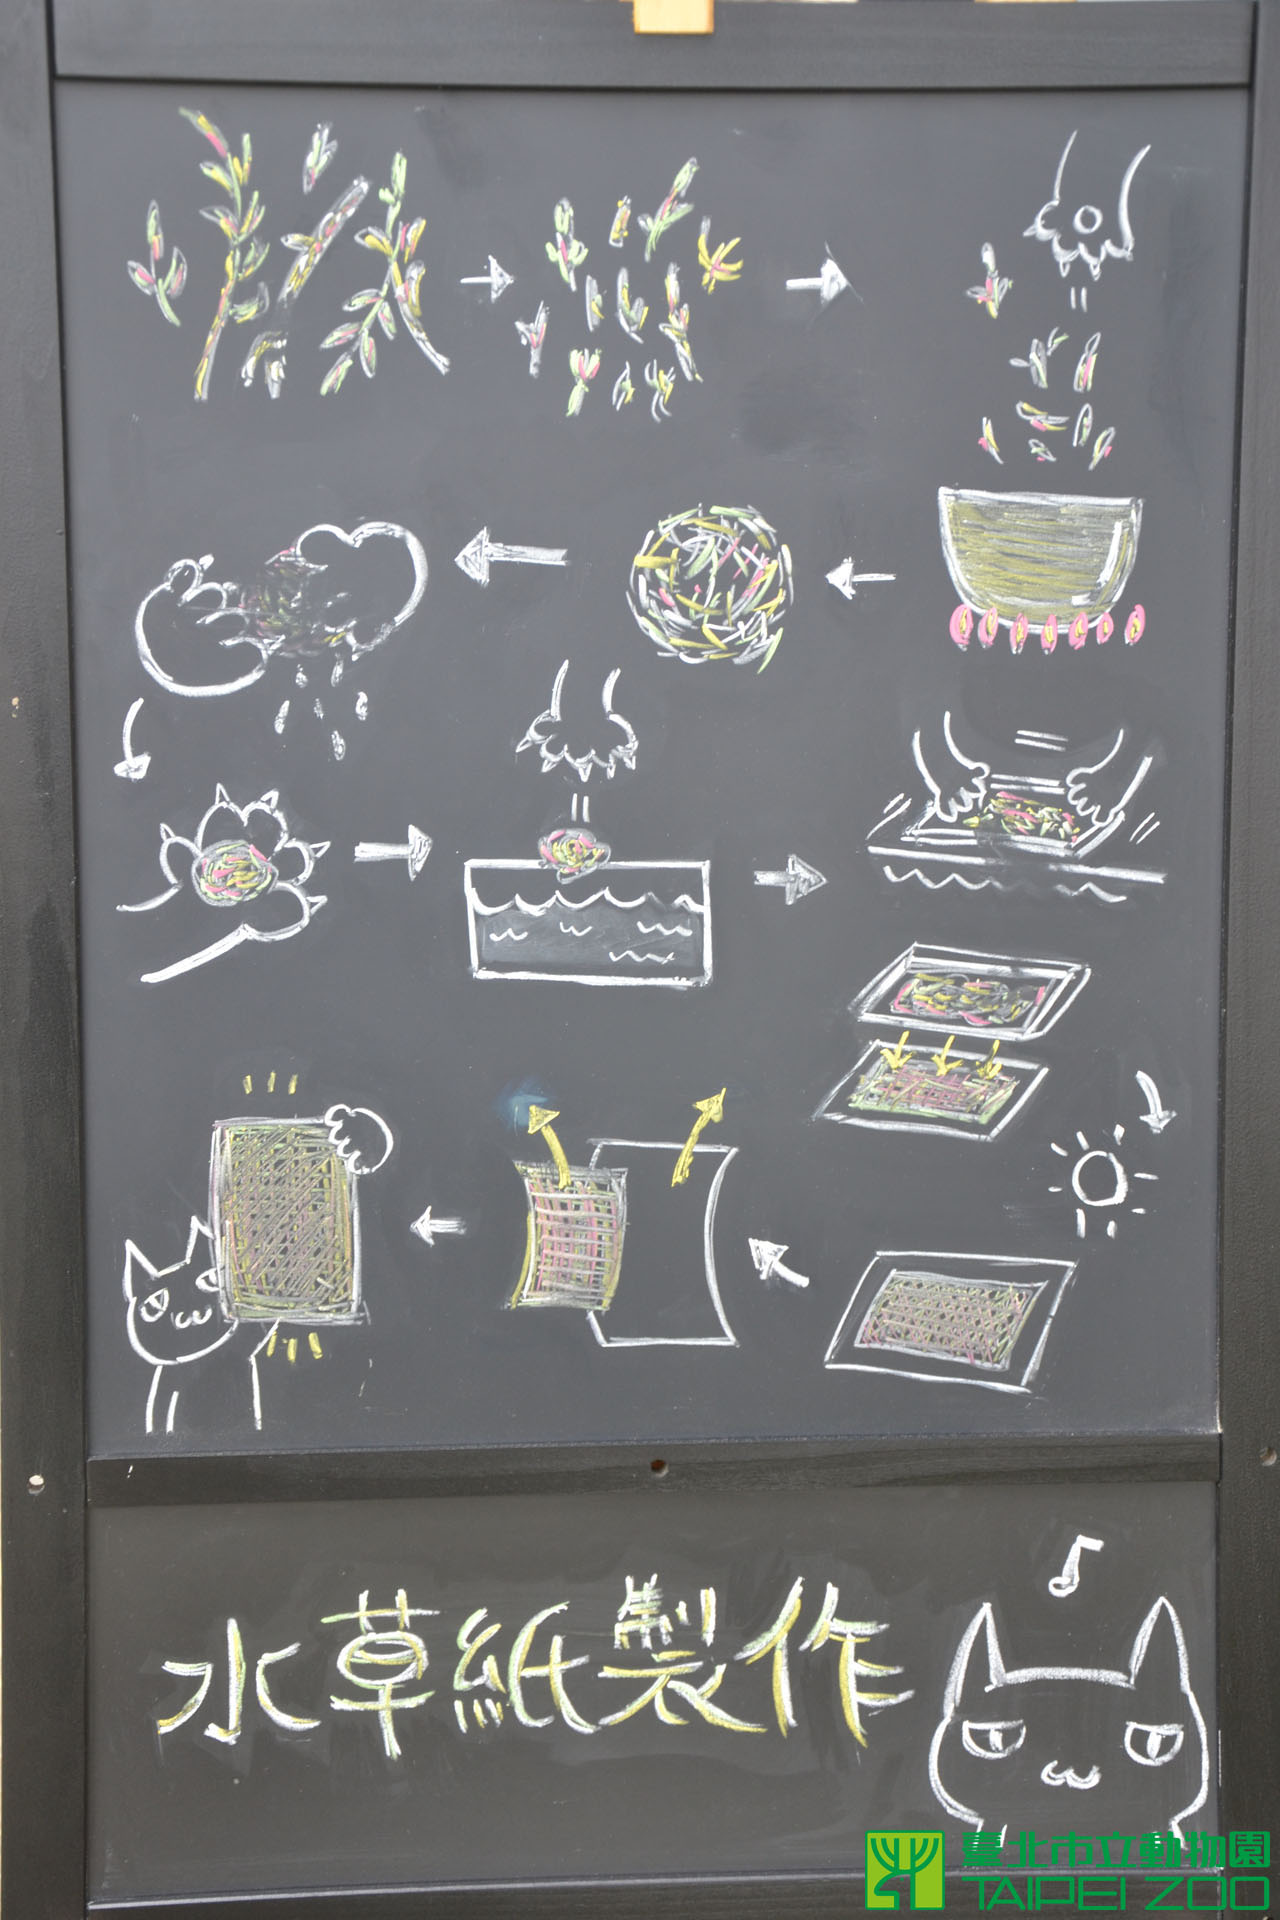 水草紙製作
臺北市立動物園
TAIPEI ZOO